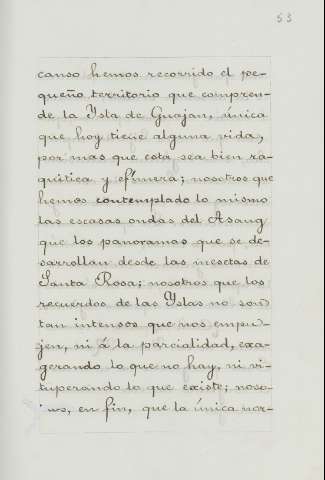 53
canso hemos recorrido el pe-
queño territorio que compren-
de la Ysla de Guajan, única
que hoy tiene alguna vida,
por mas que esta sea bien ra-
quitica y efímera; nosotros que
hemos contemplado lo mismo
las escasas ondas del Asang
que los panoramas que se de-
sarrollan desde las mesetas de
Santa Rosa; nosotros que los
recuerdos de las Yslas no son
tan intensos que nos empu-
jen, ni á la parcialidad, exa-
gerando lo que no hay, ni vi-
tuperando lo que existe; noso-
en fin, que la única nor-